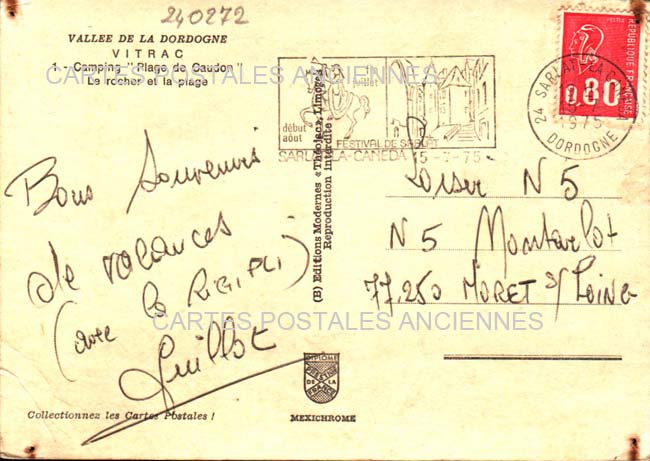 240272
VALLEE DE LA DORDOGNE
VITRAC
1. - Camping "Plage de Caudon"
Le rocher et la plage
CARTES POSTALES ANCIENNES
début
août
juillet
FESTIVAL DE SARLAT
SARLAT-LA-CANEDA
15-7-75
24 SARLAT-LA-CANEDA
1975
DORDOGNE
POSTES
REPUBLIQUE FRANÇAISE
0,80
Bons souvenirs
de vacances
(avec le
Guillot
(B) Editions Modernes « Théojac », Limoges
Reproduction interdite
Loisir N 5
N 5 Montarlot
77.250 MORET S/ Loing
CARTES POSTALES ANCIENNES
DIPLOME
PRESTIGE
DE LA
FRANCE
MEXICHROME
Collectionnez les Cartes Postales !